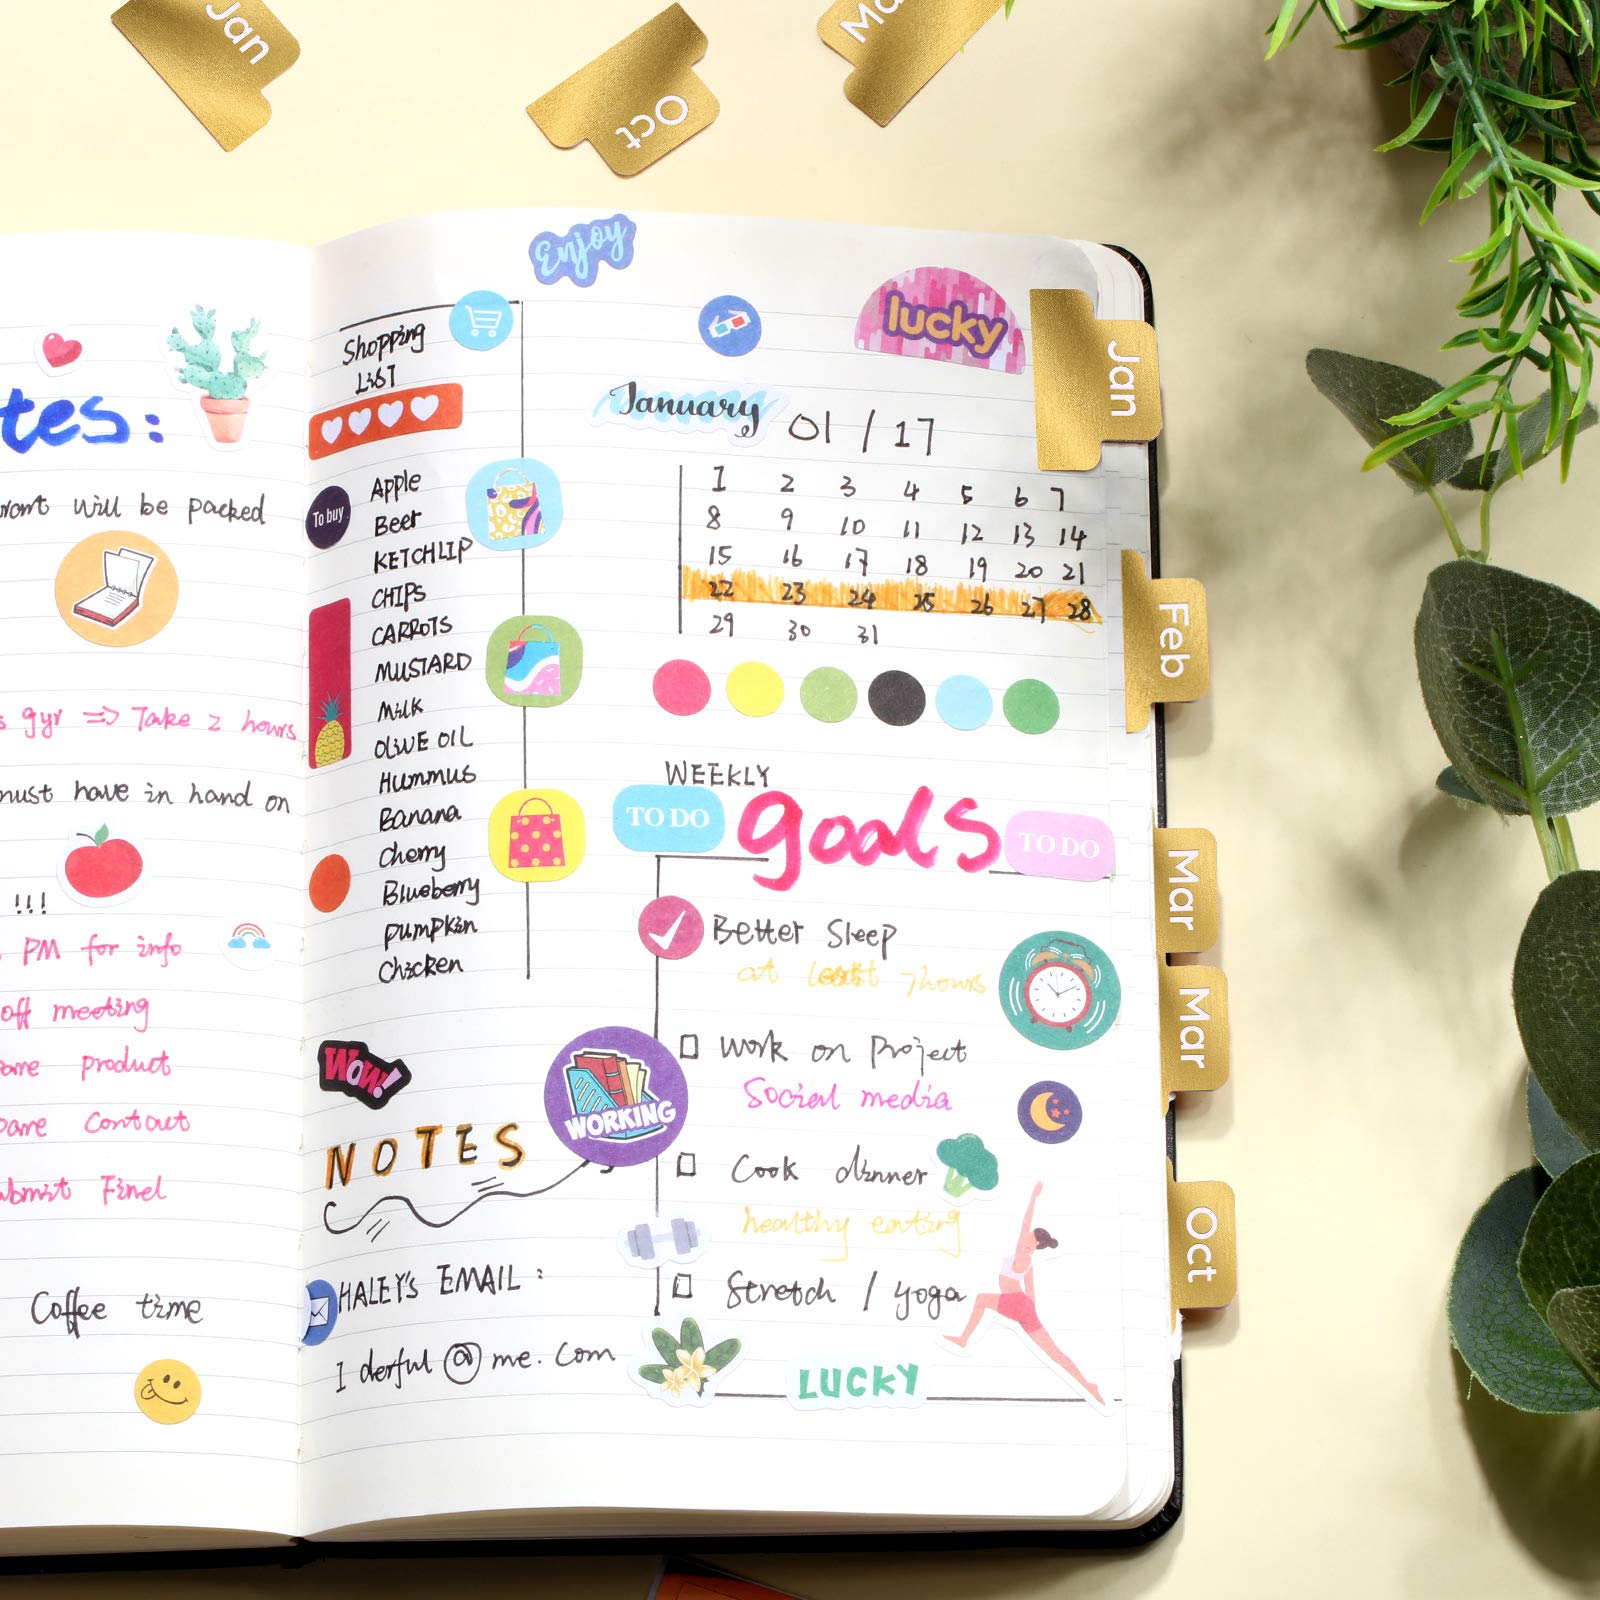 Jan
Oct
Enjoy
tes:
will be packed
gyr => Take 2 hours
must have in hand on
!!!
PM for info
off meeting
product
Contact
Finel
Coffee time
Shopping
LIST
To buy
Apple
Beer
KETCHLIP
CHIPS
CARROTS
MUSTARD
Milk
OLIVE OIL
Hummus
Banana
Cherry
Blueberry
pumpkin
Chicken
Wow!
NOTES
WORKING
HALEY'S EMAIL :
I derful @ me. Com
lucky
January 01 / 17
1 2 3 4 5 6 7
8 9 10 11 12 13 14
15 16 17 18 19 20 21
22 23 24 25 26 27 28
29 30 31
WEEKLY
TO DO goals TO DO
Better Sleep
at least 7hours
Work on Project
Social media
Cook dinner
healthy eating
Stretch / yoga
LUCKY
Jan
Feb
Mar
Mar
Oct